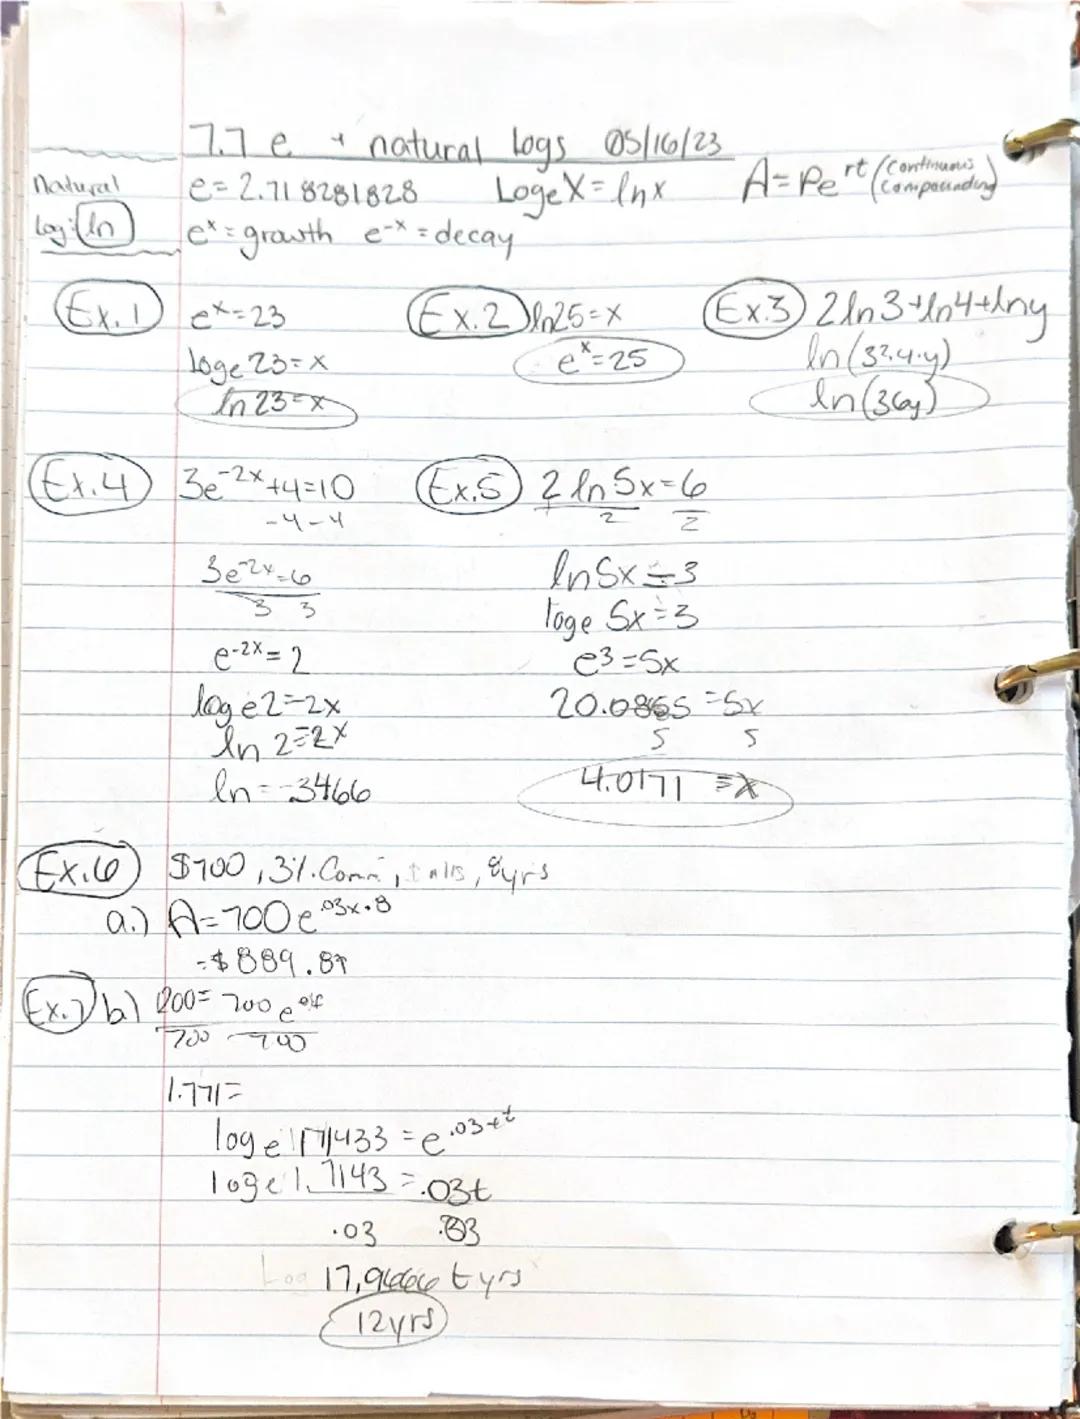 7.7 e + natural logs 05/16/23
Natural
log: ln
e = 2.718281828 Loge X = ln x A = Pe^rt (continuous compounding)
e^x = growth e^-x = decay
Ex.1 e^x = 23
loge 23 = x
ln 23 = x
Ex.2 ln25 = x
e^x = 25
Ex.3 2 ln 3 + ln 4 + ln y
ln (3^2.4.y)
ln (36y)
Ex.4 3e^-2x + 4 = 10
-4 -4
3e^-2x = 6
3 3
e^-2x = 2
log e 2 = -2x
ln 2 = -2x
ln = -.3466
Ex.5 2 ln 5x = 6
2 2
ln 5x = 3
loge 5x = 3
e^3 = 5x
20.0855 = 5x
5 5
4.0171 = x
Ex.6 $700, 3%. Com, 8yrs
a.) A = 700 e^.03x.8
= $889.89
Ex.7 b) 1200 = 700 e
700 700
1.771 =
log e 1.71433 = e^.03t
loge 1.7143 = .03t
.03 .03
17,9666 t yrs
12yrs